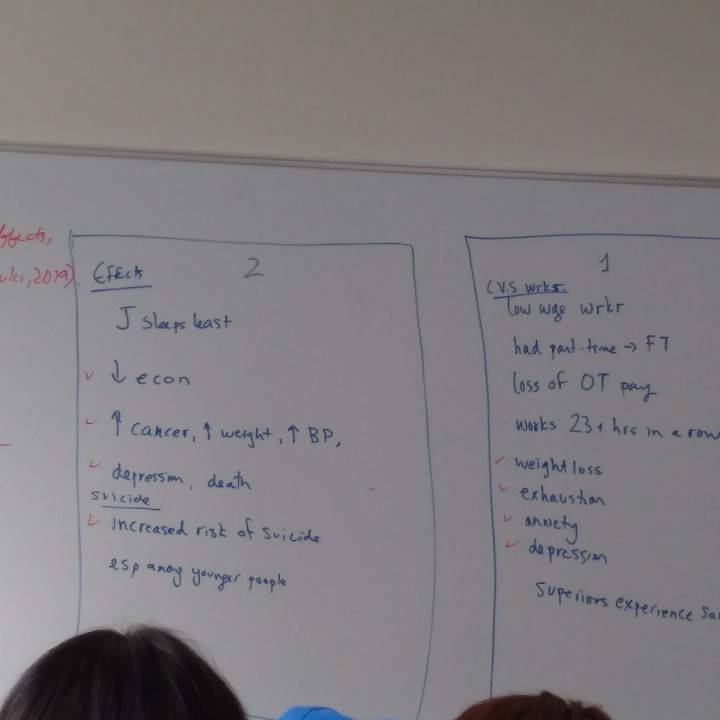 2019)
Effects 2
J sleeps least
↓ econ
↑ cancer, ↑ weight, ↑ BP,
depression, death
suicide
increased risk of suicide
esp among younger people
1
C.V.S wrks.
low wge wrkr
had part-time → FT
loss of OT pay
works 23+ hrs in a row
weight loss
exhaustion
anxiety
depression
Superiors experience